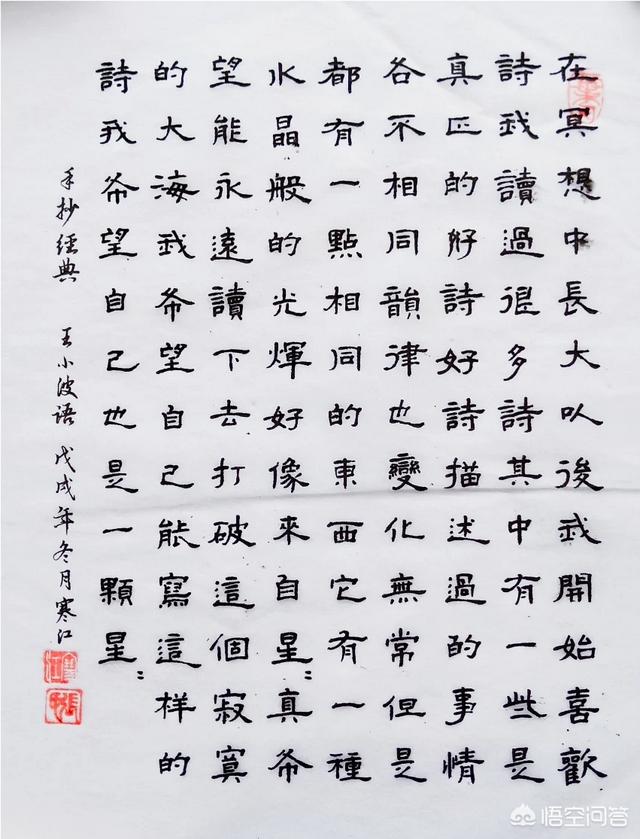 在冥想中長大以後我開始喜歡
詩我讀過很多詩其中有一些是
真正的好詩好詩描述過的事情
各不相同韻律也變化無常但是
都有一點相同的東西它有一種
水晶般的光輝好像來自星：真希
望能永遠讀下去打破這個寂寞
的大海我希望自己能寫這样的
詩我希望自己也是一顆星：
手抄經典 王小波語 戊戌年冬月寒江
悟空问答